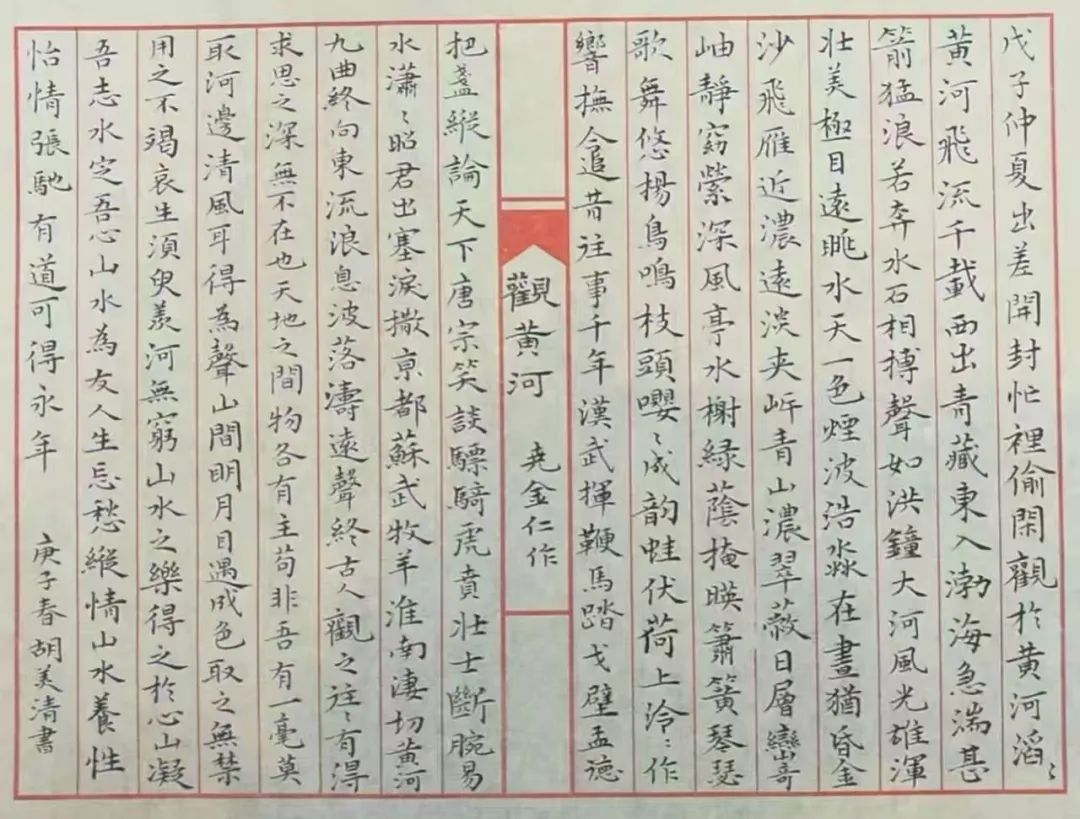 戊子仲夏出差開封忙裡偷閑觀於黄河滔〻
黄河飛流千載西出青藏東入渤海急湍甚
箭猛浪若奔水石相搏聲如洪鐘大河風光雄渾
壮美極目遠眺水天一色煙波浩淼在晝猶昏金
沙飛雁近濃遠淡夹岓青山濃翠蔽日層巒奇
岫靜窈縈深風亭水榭緑蔭掩暎簫簧琴瑟
歌舞悠揚鳥鳴枝頭嚶〻成韵蛙伏荷上泠〻作
響撫今追昔往事千年漢武揮鞭馬踏戈壁孟德
觀黄河
尭金仁作
把盞縱論天下唐宗笑談驃騎虎賁壮士斷腕易
水瀟〻昭君出塞淚撒京都蘇武牧羊淮南淒切黄河
九曲終向東流浪息波落濤遠聲終古人觀之往〻有得
求思之深無不在也天地之間物各有主苟非吾有一毫莫
取河邊清風耳得為聲山間明月目遇成色取之無禁
用之不竭哀生須臾羨河無窮山水之樂得之於心山凝
吾志水定吾心山水為友人生忘愁縱情山水養性
怡情張馳有道可得永年
庚子春胡美清書